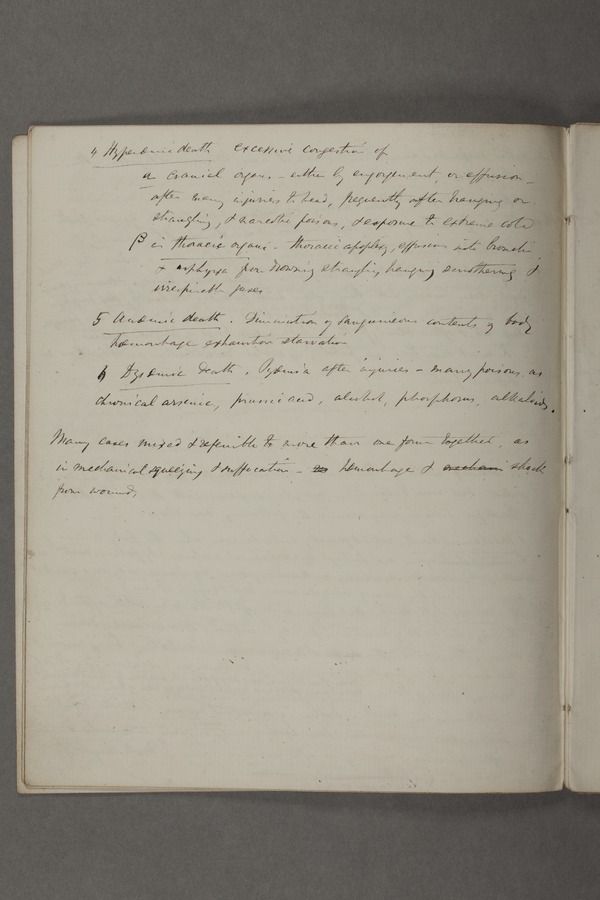 4 Hyperæmic death excessive congestion of
a cranial organs - either by engorgement, or effusion -
after many injuries to head, frequently after hanging or
strangling, & narcotic poisons, & exposure to extreme cold
β in thoracic organs - thoracic apoplexy, effusions into bronchi,
& asphyxia from drowning strangling hanging smothering &
irrespirable gases
5 Anæmic death. Diminution of sanguineous contents of body
hæmorrhage exhaustion starvation
6 Dysæmic death. Pyæmia after injuries - many poisons, as
chronical arsenic, prussic acid, alcohol, phosphorus, alkaloids.
Many cases mixed & referible to more than one form together, as
in mechanical squeezing & suffocation - hemorrhage & shock
from wounds